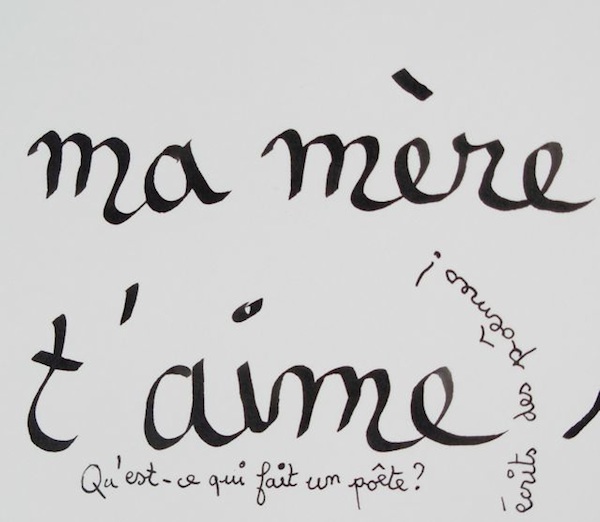 ma mère
t'aime
Qu'est-ce qui fait un poête?
écrits des poêmes !